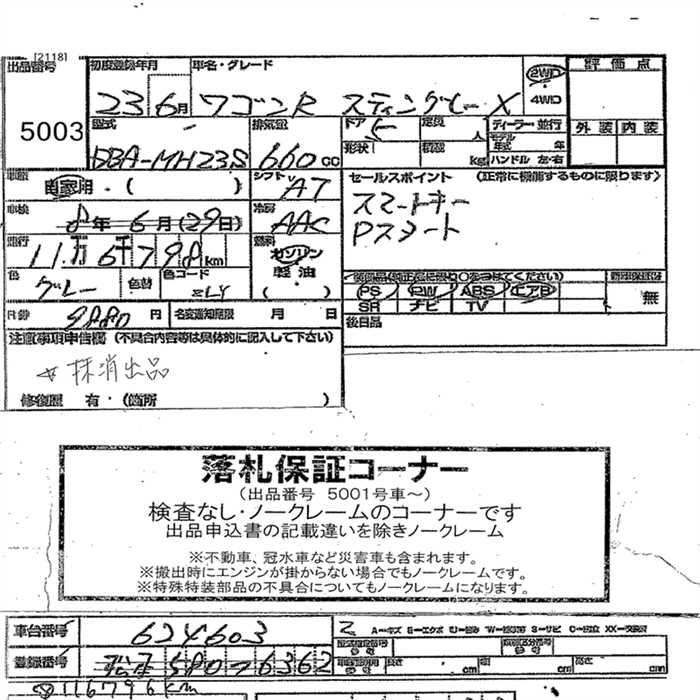 [2118]
出品番号 5003
初度登録年月 23 6月
車名・グレード ワゴンR スティングレー X
2WD
4WD
評価点
型式 DBA-MH23S
排気量 660cc
ドア 5
定員 人
ディーラー・並行
モデル年式 年
外装 内装
形状
積載 kg
ハンドル 左・右
車歴 自家用・( )
シフト AT
セールスポイント (正常に機能するものに限ります)
スマートキー
Pスタート
車検 8年 6月(29日)
冷房 AAC
走行 11万6千798km
燃料 ガソリン
軽油
( )
色 グレー
色替
色コード ZLY
PS PW ABS エアB
SR ナビ TV
無
後日品
R券 9880円
名変通知期限 月 日
注意事項申告欄 (不具合内容等は具体的に記入して下さい)
☆抹消出品
修復歴 有・(箇所 )
落札保証コーナー
(出品番号 5001号車~)
検査なし・ノークレームのコーナーです
出品申込書の記載違いを除きノークレーム
※不動車、冠水車など災害車も含まれます。
※搬出時にエンジンが掛からない場合でもノークレームです。
※特殊特装部品の不具合についてもノークレームになります。
車台番号 624603
A−キズ E−エクボ U−凹み W−波 S−サビ C−腐食 XX−交換済
登録番号 580 6362
長さ cm 幅 cm 高さ cm
116796km